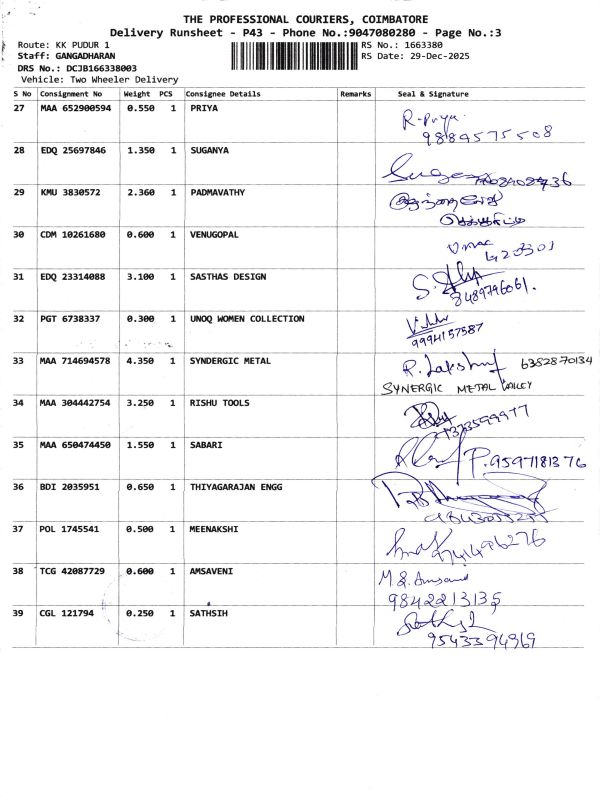 THE PROFESSIONAL COURIERS, COIMBATORE
Delivery Runsheet - P43 - Phone No.:9047080280 - Page No.:3
Route: KK PUDUR 1 RS No.: 1663380
Staff: GANGADHARAN RS Date: 29-Dec-2025
DRS No.: DCJB166338003
Vehicle: Two Wheeler Delivery
S No Consignment No Weight PCS Consignee Details Remarks Seal & Signature
27 MAA 652900594 0.550 1 PRIYA R-Priya
9884575508
28 EDQ 25697846 1.350 1 SUGANYA
29 KMU 3830572 2.360 1 PADMAVATHY
30 CDM 10261680 0.600 1 VENUGOPAL
31 EDQ 23314088 3.100 1 SASTHAS DESIGN
8489796061.
32 PGT 6738337 0.300 1 UNOQ WOMEN COLLECTION
9994157587
33 MAA 714694578 4.350 1 SYNDERGIC METAL R. Lakshmi 6382870134
SYNERGIC METAL VALLEY
34 MAA 304442754 3.250 1 RISHU TOOLS
35 MAA 650474450 1.550 1 SABARI
P.9597181376
36 BDI 2035951 0.650 1 THIYAGARAJAN ENGG
37 POL 1745541 0.500 1 MEENAKSHI
38 TCG 42087729 0.600 1 AMSAVENI
9842213135
39 CGL 121794 0.250 1 SATHSIH
9543394969